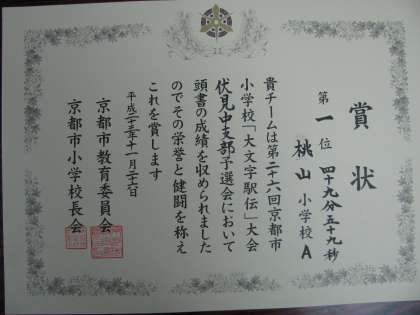 賞状
第一位 四十九分五十九秒
桃山小学校A
貴チームは第二十六回京都市
小学校「大文字駅伝」大会
伏見中支部予選会において
頭書の成績を収められました
のでその栄誉と健闘を称え
これを賞します
平成二十三年十一月二十六日
京都市教育委員会
京都市小学校長会